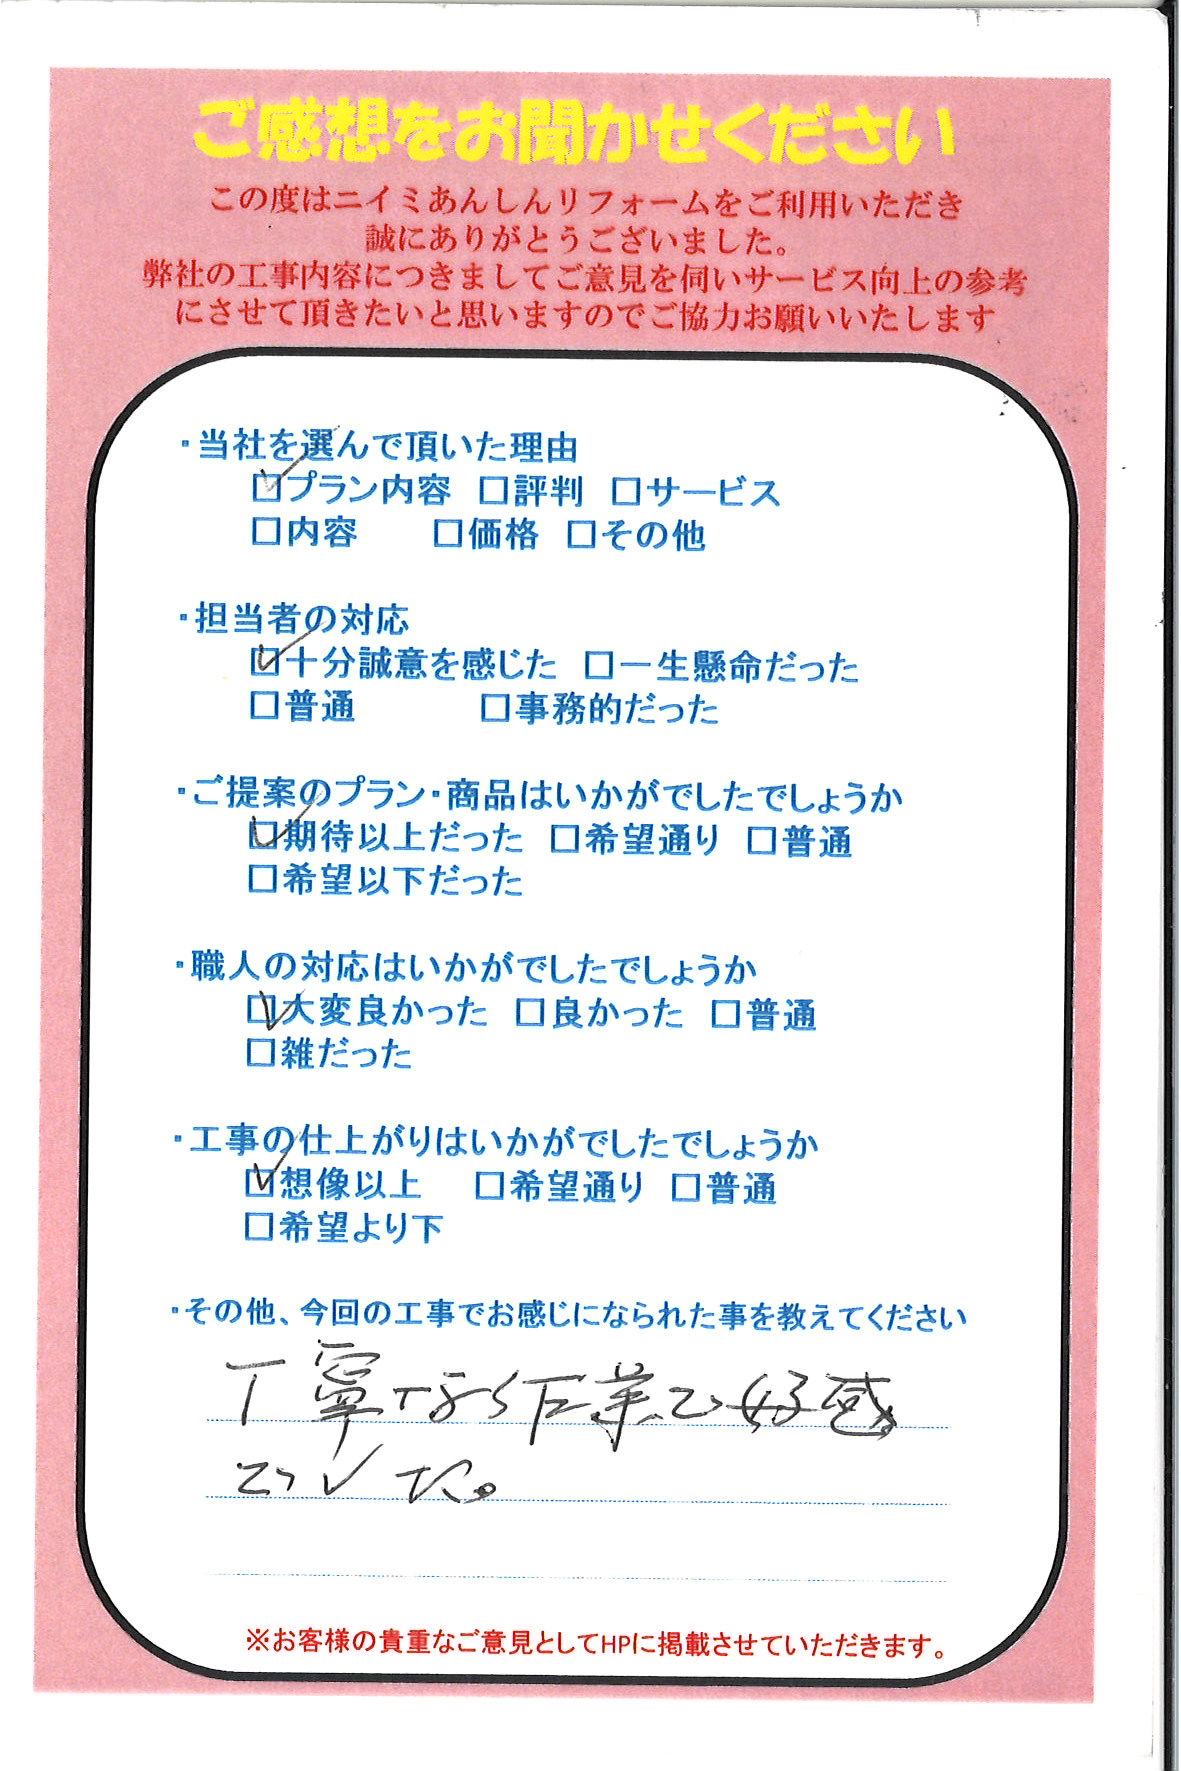 ご感想をお聞かせください
この度はニイミあんしんリフォームをご利用いただき
誠にありがとうございました。
弊社の工事内容につきましてご意見を伺いサービス向上の参考
にさせて頂きたいと思いますのでご協力お願いいたします
・当社を選んで頂いた理由
☑プラン内容 □評判 □サービス
□内容 □価格 □その他
・担当者の対応
☑十分誠意を感じた □一生懸命だった
□普通 □事務的だった
・ご提案のプラン・商品はいかがでしたでしょうか
☑期待以上だった □希望通り □普通
□希望以下だった
・職人の対応はいかがでしたでしょうか
☑大変良かった □良かった □普通
□雑だった
・工事の仕上がりはいかがでしたでしょうか
☑想像以上 □希望通り □普通
□希望より下
・その他、今回の工事でお感じになられた事を教えてください
丁寧な作業で好感
※お客様の貴重なご意見としてHPに掲載させていただきます。